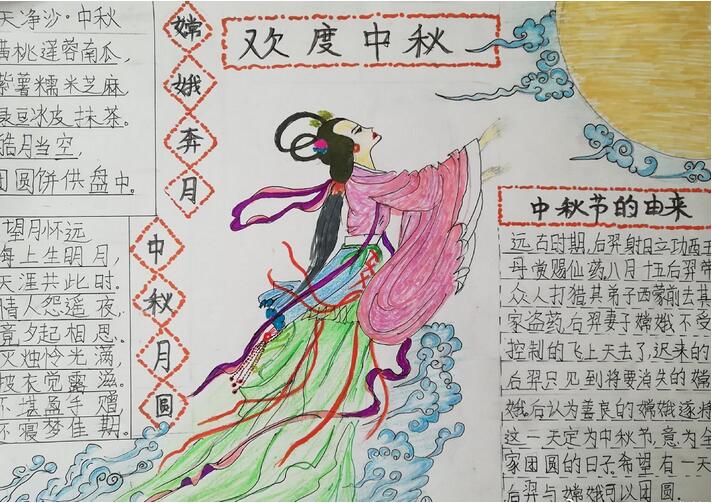 天净沙·中秋
黄桃莲蓉南瓜，
紫薯糯米芝麻
豆冰皮抹茶。
皓月当空，
团圆饼供盘中。
嫦娥奔月
欢度中秋
望月怀远
海上生明月，
天涯共此时。
情人怨遥夜，
竟夕起相思。
灭烛怜光满，
披衣觉露滋。
不堪盈手赠，
还寝梦佳期。
中秋月圆
中秋节的由来
远古时期，后羿射日立功西王
母赏赐仙药八月十五后羿带
众人打猎其弟子西蒙前去其
家盗药，后羿妻子嫦娥不受
控制的飞上天去了，迟来的
后羿只见到将要消失的嫦
娥，后认为善良的嫦娥逐将
这一天定为中秋节，意为全
家团圆的日子，希望有一天
后羿与嫦娥可以团圆